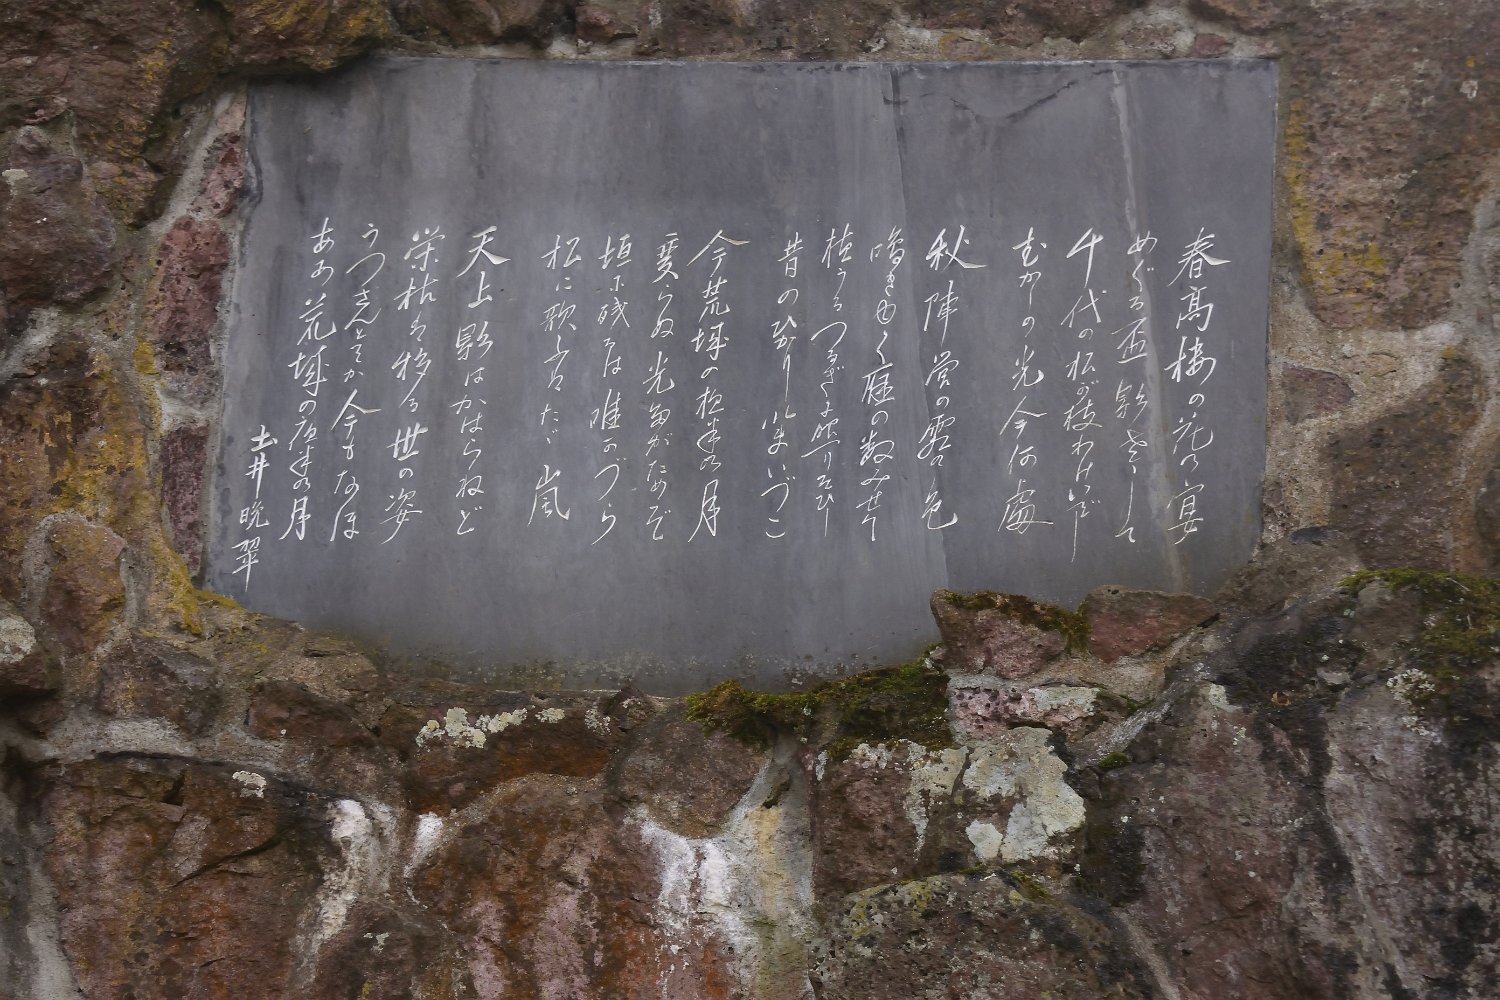 春高楼の花の宴
めぐる盃影さして
千代の松が枝わけいでし
むかしの光今何処
秋陣営の霜の色
鳴きゆく雁の数みせて
植うるつるぎに照りそひし
昔のひかり今いづこ
今荒城の夜半の月
変らぬ光誰がためぞ
垣に残るは唯かづら
松に歌ふはたゞ嵐
天上影はかはらねど
栄枯は移る世の姿
うつさんとてか今もなほ
あゝ荒城の夜半の月
土井晩翠